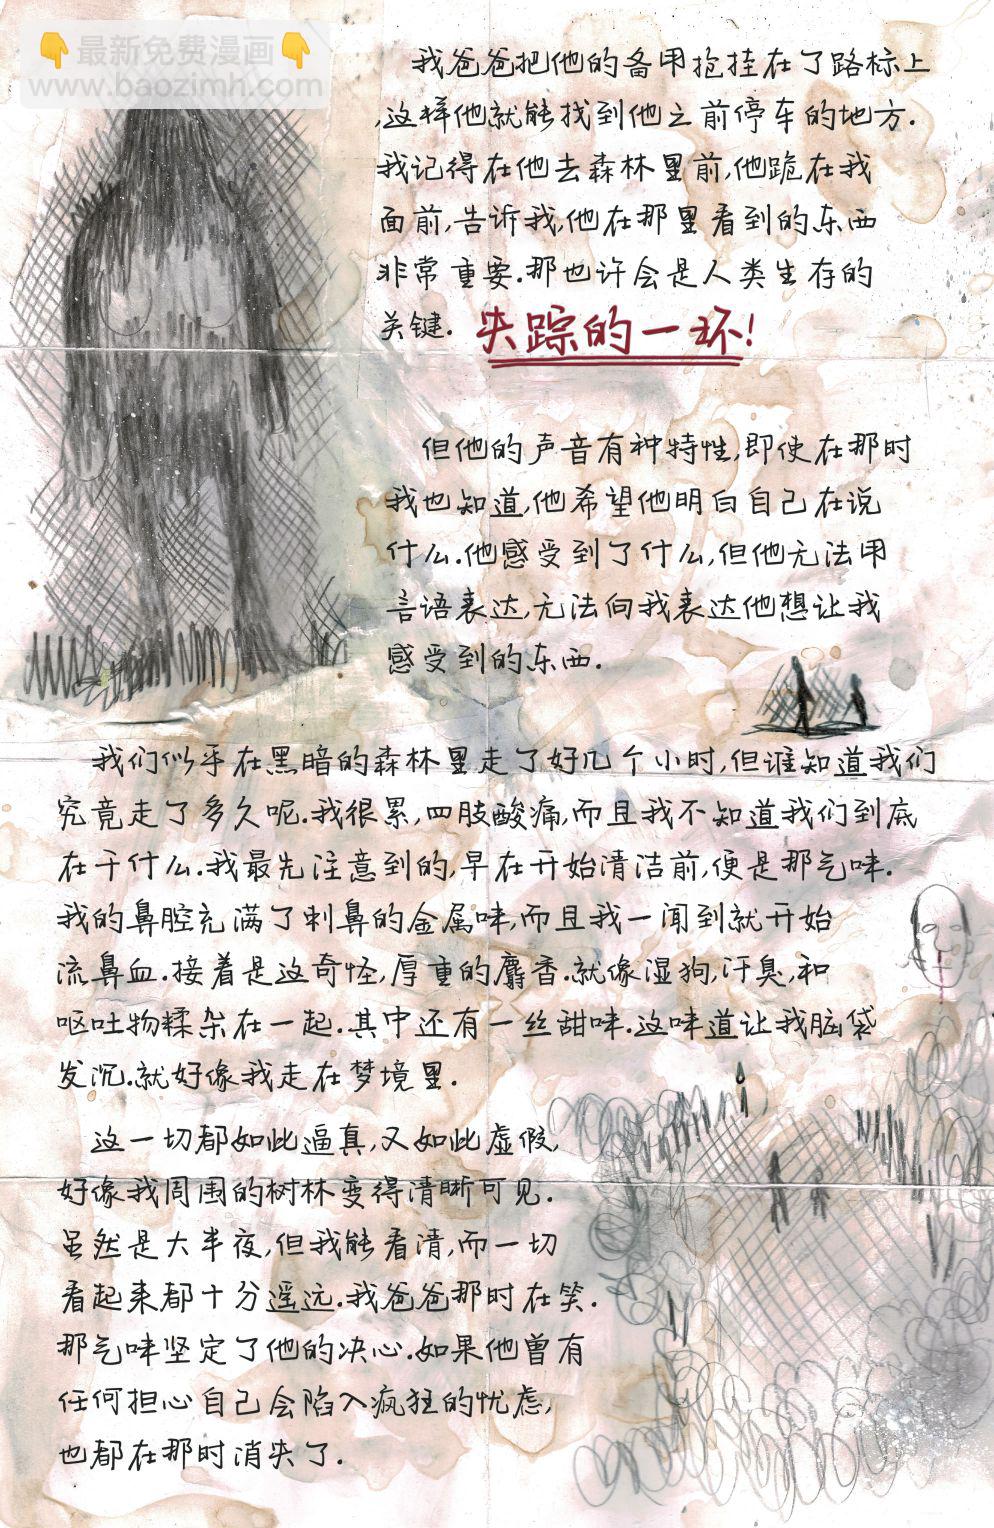 最新免费漫画
www.baozimh.com
我爸爸把他的备用袍挂在了路标上
,这样他就能找到他之前停车的地方.
我记得在他去森林里前,他跪在我
面前,告诉我,他在那里看到的东西
非常重要.那也许会是人类生存的
关键.失踪的一环!
但他的声音有种特性,即使在那时
我也知道,他希望他明白自己在说
什么.他感受到了什么,但他无法用
言语表达,无法向我表达他想让我
感受到的东西.
我们似乎在黑暗的森林里走了好几个小时,但谁知道我们
究竟走了多久呢.我很累,四肢酸痛,而且我不知道我们到底
在干什么.我最先注意到的,早在开始清洁前,便是那气味.
我的鼻腔充满了刺鼻的金属味,而且我一闻到就开始
流鼻血.接着是这奇怪,厚重的麝香.就像湿狗,汗臭,和
呕吐物糅杂在一起.其中还有一丝甜味.这味道让我脑袋
发沉.就好像我走在梦境里.
这一切都如此逼真,又如此虚假,
好像我周围的树林变得清晰可见.
虽然是大半夜,但我能看清,而一切
看起来都十分遥远.我爸爸那时在笑.
那气味坚定了他的决心.如果他曾有
任何担心自己会陷入疯狂的忧虑,
也都在那时消失了.